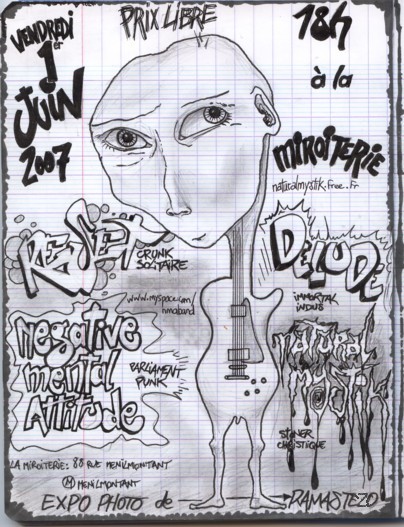 PRIX LIBRE
VENDREDI
1er
JUIN
2007
18h
à la
MIROITERIE
naturalmystik.free.fr
RESET
CRUNK
SOLITAIRE
DELUDE
IMMORTAL
INDUS
www.myspace.com/
nmaband
Negative
mental
Attitude
PARLIAMENT
PUNK
NATURAL
MYSTIK
STONER
LA MIROITERIE: 88 RUE MENILMONTANT
M MENILMONTANT
EXPO PHOTO de RAMASTEZO